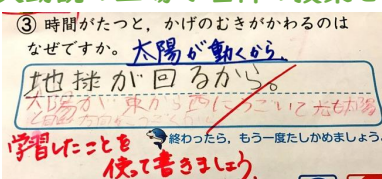 ③ 時間がたつと、かげのむきがかわるのは
なぜですか。太陽が動くから。
地球が回るから。
太陽が東から西にうごいて
学習したことを
終わったら、もう一度たしかめましょう。
使って書きましょう。